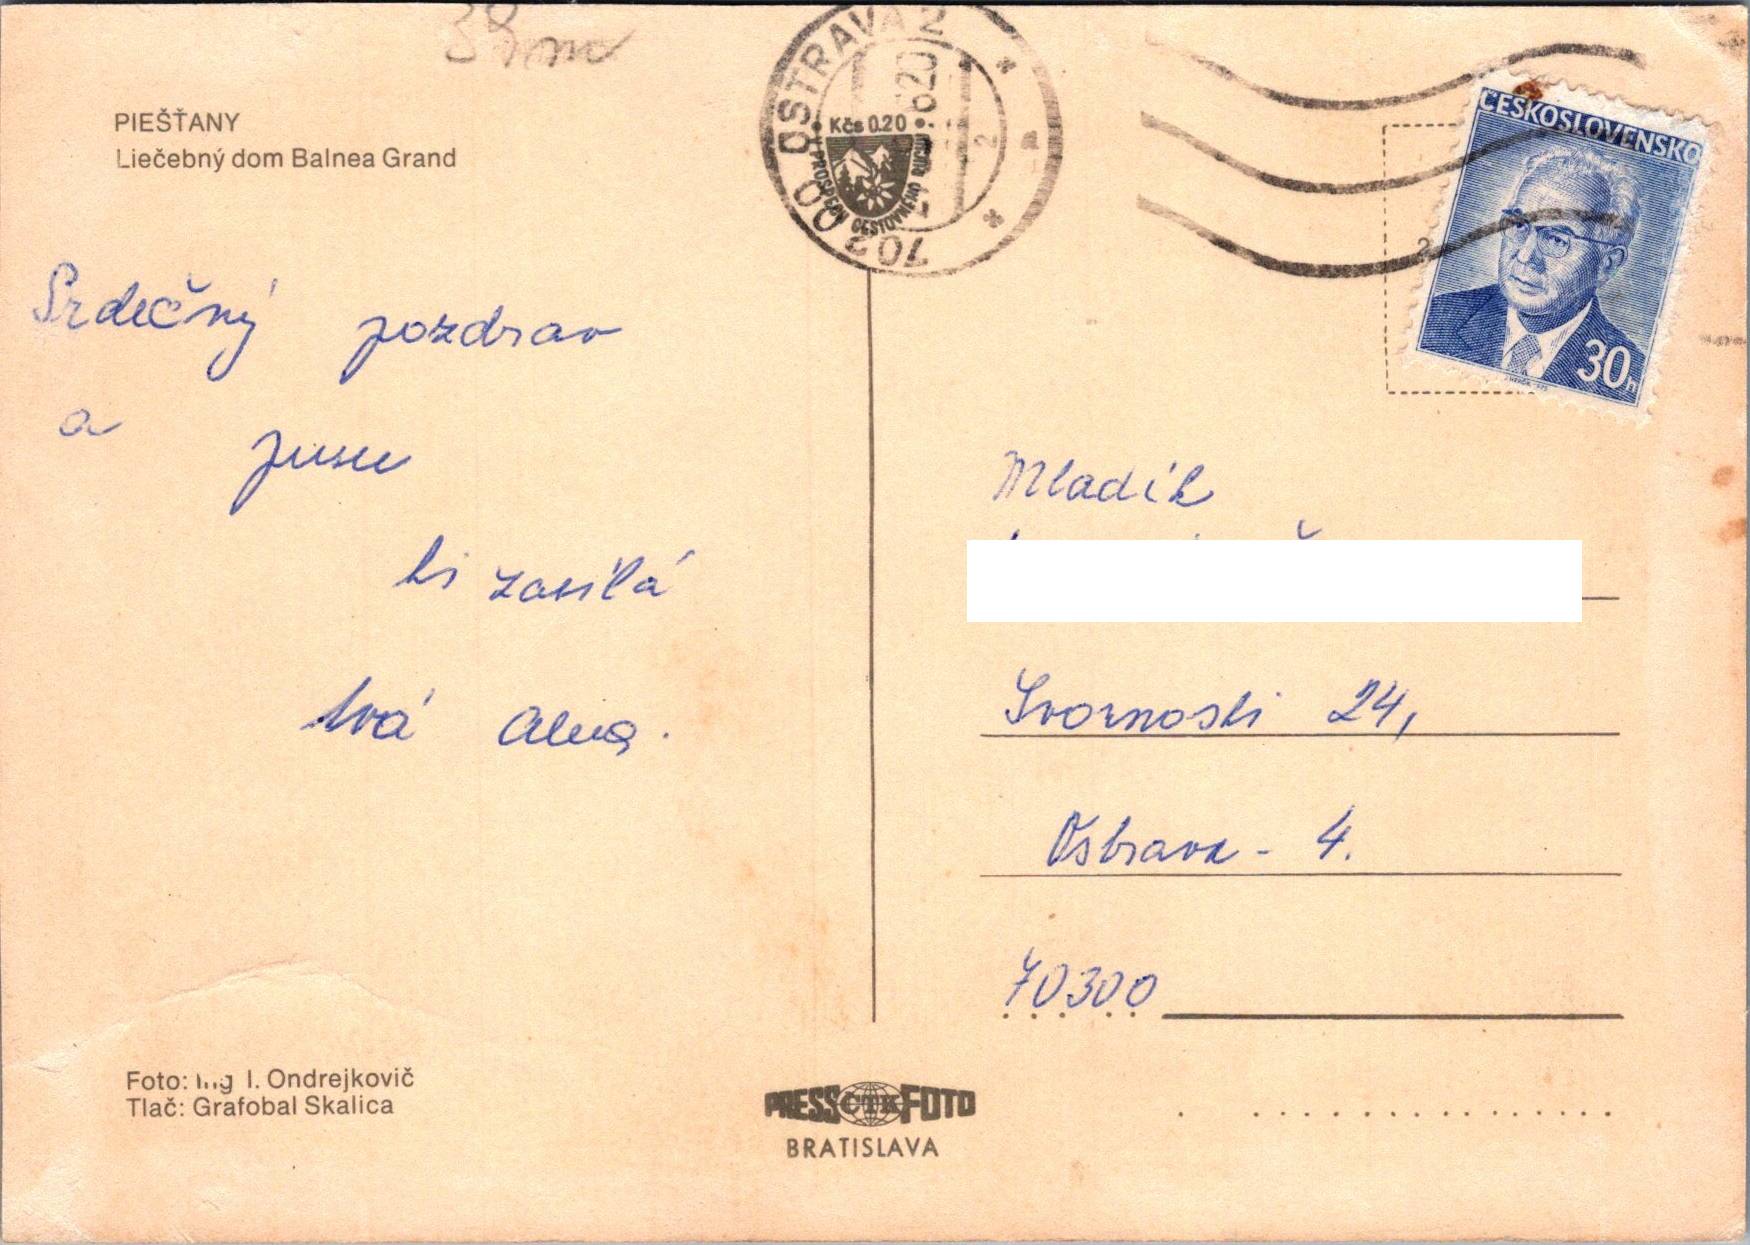 PIEŠŤANY
Liečebný dom Balnea Grand
Srdečný pozdrav
a pusu
ti zasílá
tvá Alena.
Foto: Ing I. Ondrejkovič
Tlač: Grafobal Skalica
702 00 OSTRAVA 2
Kčs 0.20
K PROSPECHU CESTOVNÉHO RUCHU
PRESS ČTK FOTO
BRATISLAVA
ČESKOSLOVENSKO
30h
Mladík
Svornosti 24,
Ostrava - 4.
70300